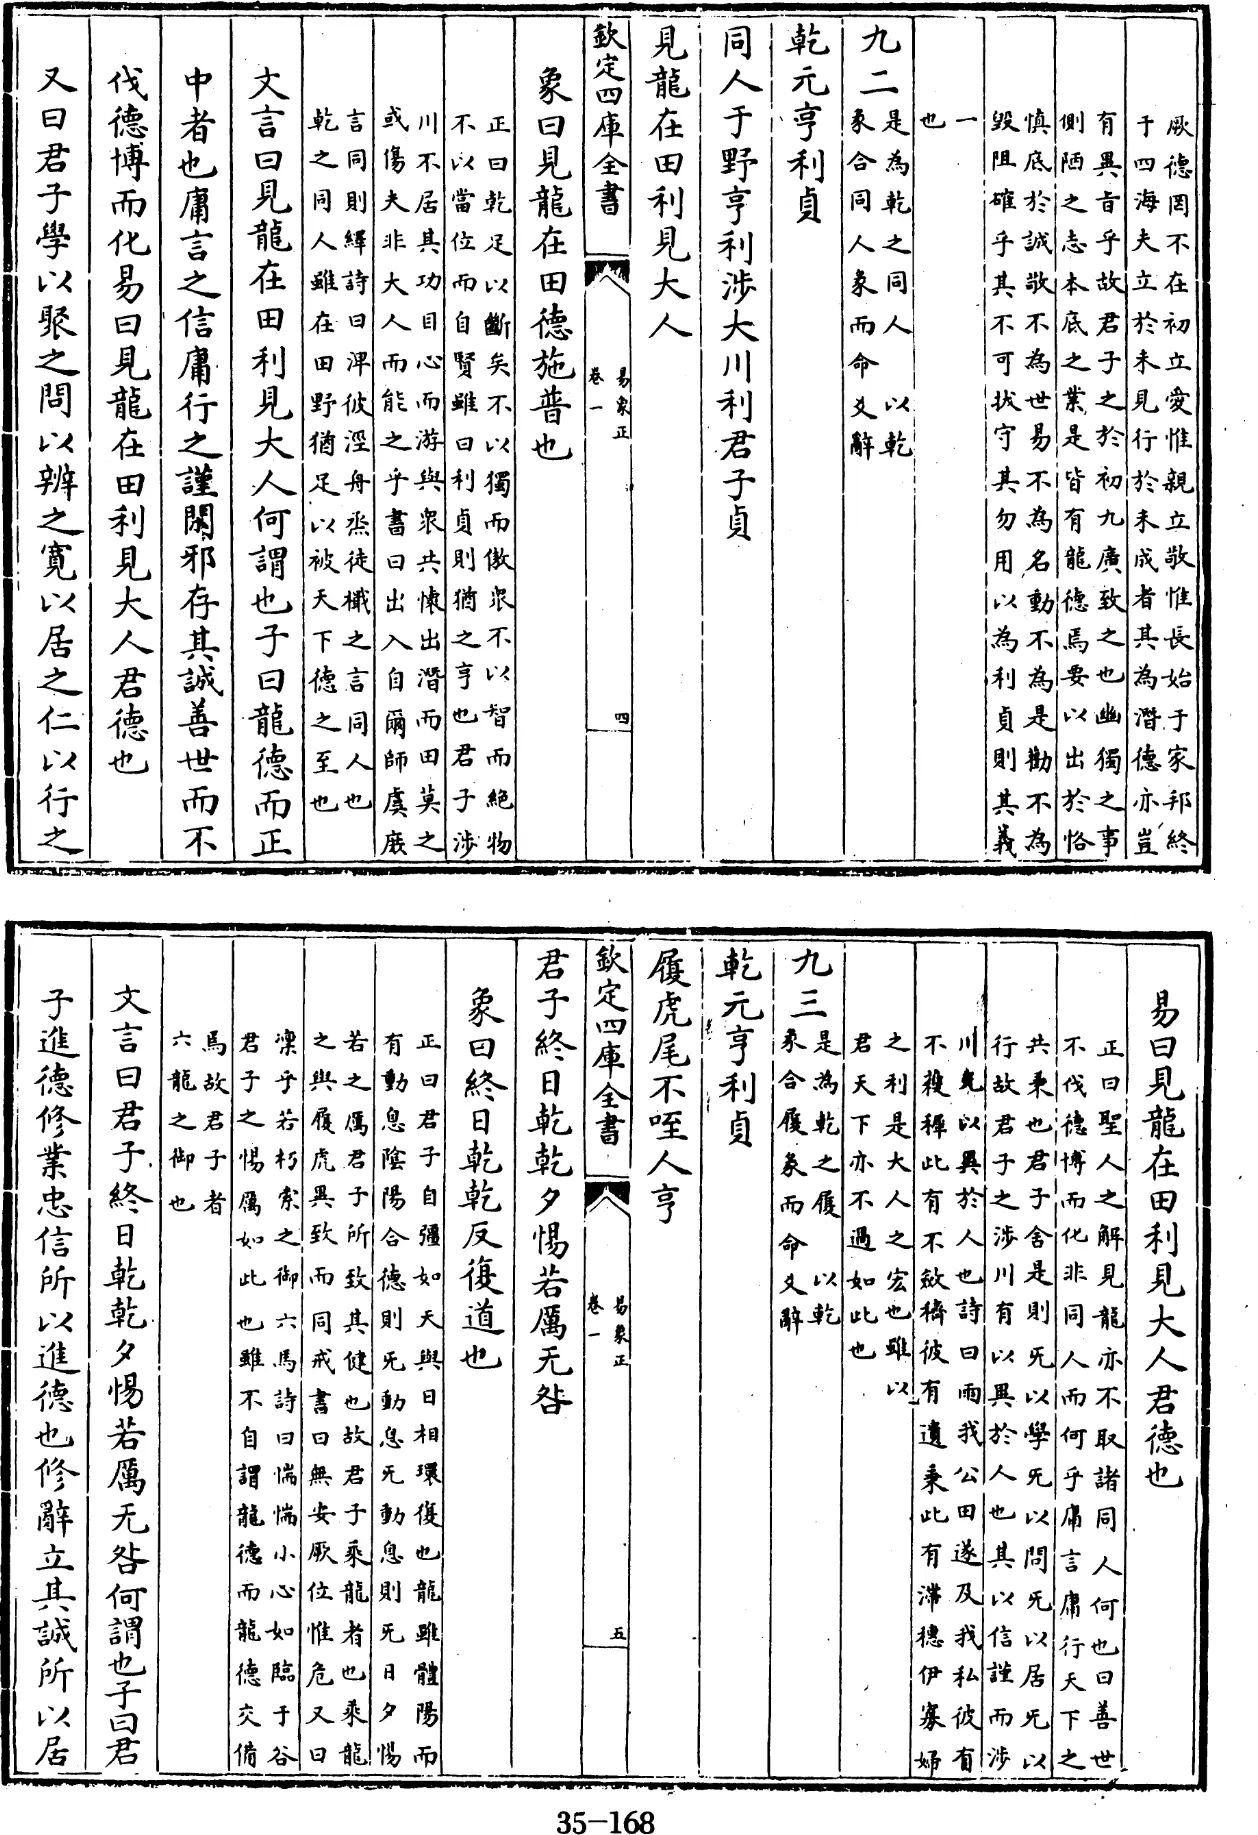 厥德罔不在初立愛惟親立敬惟長始于家邦終
于四海夫立於未見行於未成者其為潛德亦豈
有異旨乎故君子之於初九廣致之也幽獨之事
側陋之志本底之業是皆有龍德焉要以出於恪
慎底於誠敬不為世易不為名動不為是勸不為
毀阻確乎其不可拔守其勿用以為利貞則其義
一
也
九二
是為乾之同人以乾
彖合同人象而命爻辭
乾元亨利貞
同人于野亨利涉大川利君子貞
見龍在田利見大人
欽定四庫全書
易象正
卷一
四
象曰見龍在田德施普也
正曰乾足以斷矣不以獨而傲衆不以智而絶物
不以當位而自賢雖曰利貞則猶之亨也君子涉
川不居其功目心而游與衆共懐出潛而田莫之
或傷夫非大人而能之乎書曰出入自爾師虞庶
言同則繹詩曰淠彼涇舟烝徒檝之言同人也
乾之同人雖在田野猶足以被天下德之至也
文言曰見龍在田利見大人何謂也子曰龍德而正
中者也庸言之信庸行之謹閑邪存其誠善世而不
伐德博而化易曰見龍在田利見大人君德也
又曰君子學以聚之問以辨之寛以居之仁以行之
易曰見龍在田利見大人君德也
正曰聖人之解見龍亦不取諸同人何也曰善世
不伐德博而化非同人而何乎庸言庸行天下之
共秉也君子舍是則旡以學旡以問旡以居旡以
行故君子之涉川有以異於人也其以信謹而涉
川寛以異於人也詩曰雨我公田遂及我私彼有
不穫穉此有不斂穧彼有遺秉此有滯穗伊寡婦
之利是大人之宏也雖以
君天下亦不過如此也
九三
是為乾之履以乾
彖合履彖而命爻辭
乾元亨利貞
履虎尾不咥人亨
欽定四庫全書
易象正
卷一
五
君子終日乾乾夕惕若厲旡咎
象曰終日乾乾反復道也
正曰君子自彊如天與日相環復也龍雖體陽而
有動息隂陽合德則旡動息旡動息則旡日夕惕
若之厲君子所致其健也故君子乘龍者也乘龍
之與履虎異致而同戒書曰無安厥位惟危又曰
凜乎若朽索之御六馬詩曰惴惴小心如臨于谷
君子之惕厲如此也雖不自謂龍德而龍德交備
焉故君子者
六龍之御也
文言曰君子終日乾乾夕惕若厲旡咎何謂也子曰君
子進德修業忠信所以進德也修辭立其誠所以居
35-168